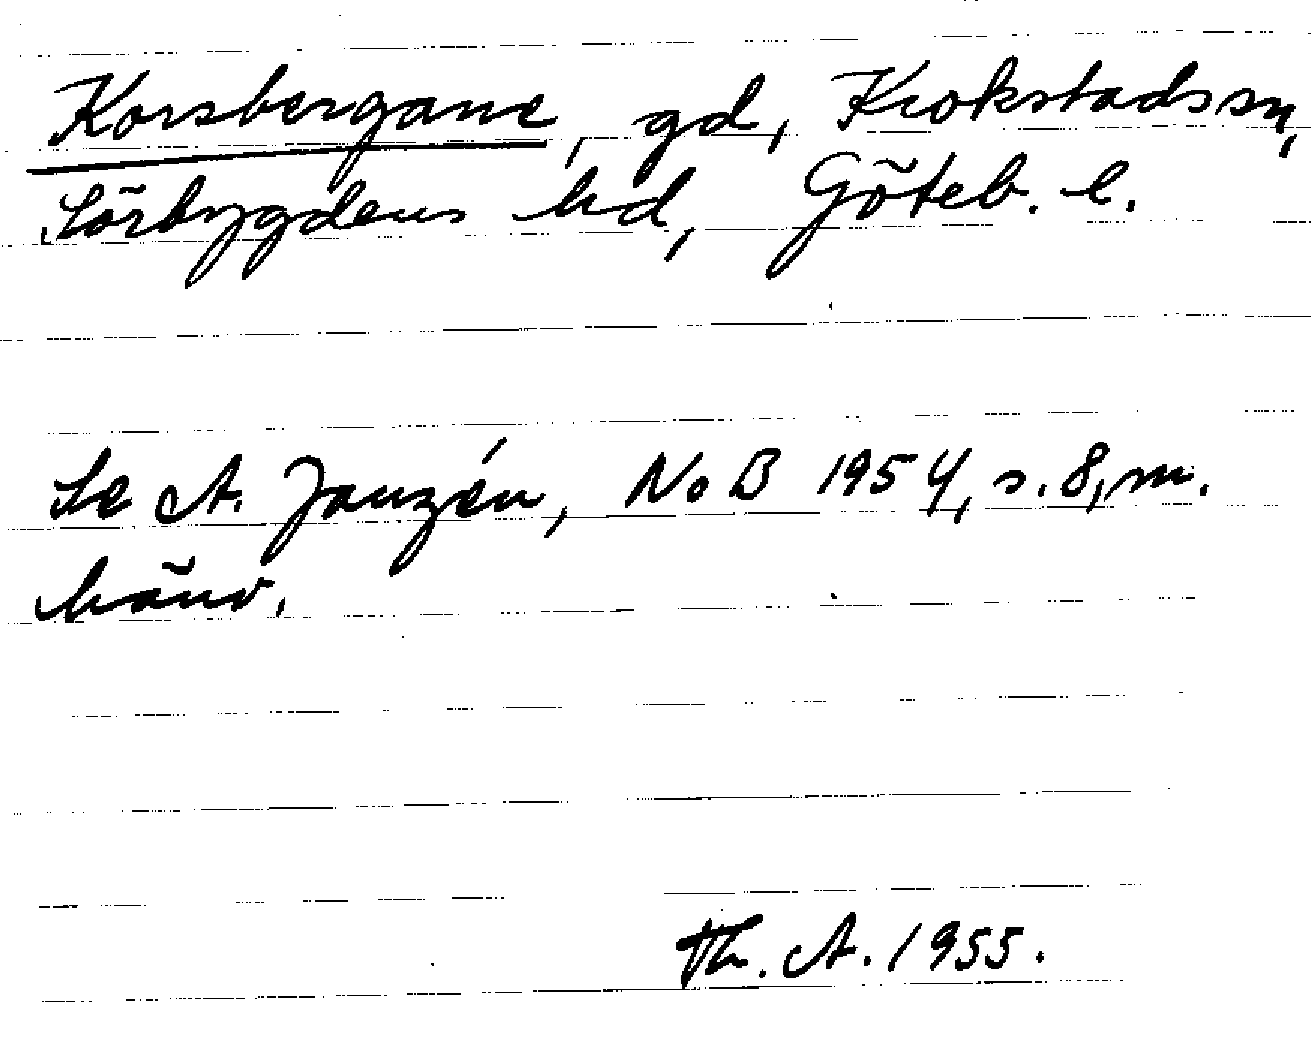 Korsbergane, gd, Krokstads sn,
Sörbygdens hd, Göteb. l.
Se A. Janzén, NoB 1954, s. 8, m.
hänv.
Th. A. 1955.